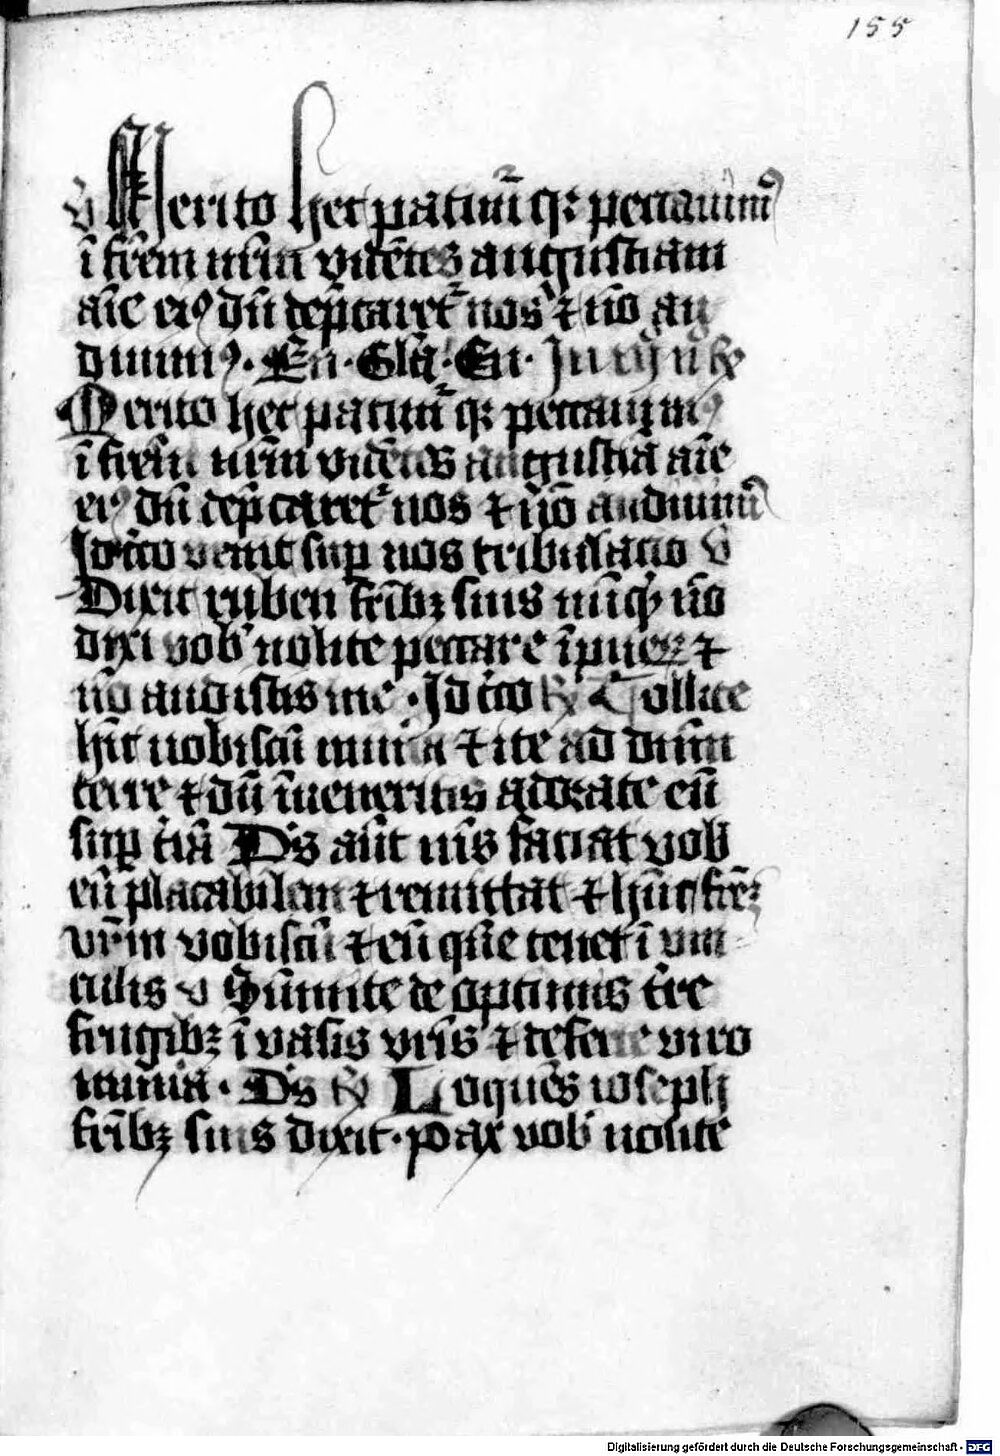 155
v Merito hec patimur qr peccauimꝰ
ī frēm nrm vidētes angustiam
aīe eiꝰ dū dep̄caret nos ⁊ nō au
diuimꝰ. En. Glā. En.
Merito hec patimur qr peccauimꝰ
ī frēm nrm vidētes angustiā aīe
eiꝰ dū dep̄caret nos ⁊ nō audiuimꝰ
Idcīco venit sup nos tribulacio v
Dixit ruben frībꝫ suis nūqͥd nō
dixi vob nolite peccare ī pueꝝ ⁊
nō audistis me. Idcīco ℟ Tollite
hīc uobiscū mun̄a ⁊ ite ad dnm
terre ⁊ dū īueneritis adorate eū
sup trā Ds aūt nr̄s faciat vob
eū placabilem ⁊ remittat ⁊ hūc frēꝫ
vrm vobiscū ⁊ eū quē tenet ī vin
culis v Sumite de optimis tr̄e
frugibꝫ ī vasis vr̄is ⁊ deferte viro
mun̄a. Ds ℟ Loquēs ioseph
frībꝫ suis dixit. Pax vob nolite
Digitalisierung gefördert durch die Deutsche Forschungsgemeinschaft - DFG